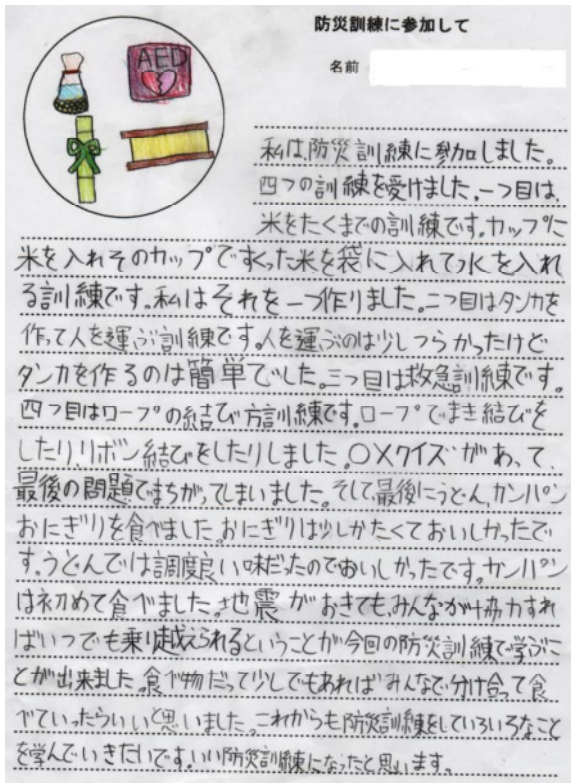 防災訓練に参加して
名前
AED
私は、防災訓練に参加しました。
四つの訓練を受けました。一つ目は、
米をたくまでの訓練です。カップに
米を入れそのカップですくった米を袋に入れて水を入れ
る訓練です。私はそれを一つ作りました。二つ目はタンカを
作って人を運ぶ訓練です。人を運ぶのは少しつらかったけど
タンカを作るのは簡単でした。三つ目は救急訓練です。
四つ目はロープの結び方訓練です。ロープでまき結びを
したり、リボン結びをしたりしました。〇×クイズがあって、
最後の問題でまちがってしまいました。そして最後にうどん、カンパン
おにぎりを食べました。おにぎりは少しかたくておいしかったで
す。うどんでは調度良い味だったのでおいしかったです。カンパン
は初めて食べました。地震がおきても、みんなが協力すれ
ばいつでも乗り越えられるということが今回の防災訓練で学ぶこ
とが出来ました。食べ物だって少しでもあればみんなで分け合って食
べていったらいいと思いました。これからも防災訓練をしていろいろなこと
を学んでいきたいです。いい防災訓練になったと思います。